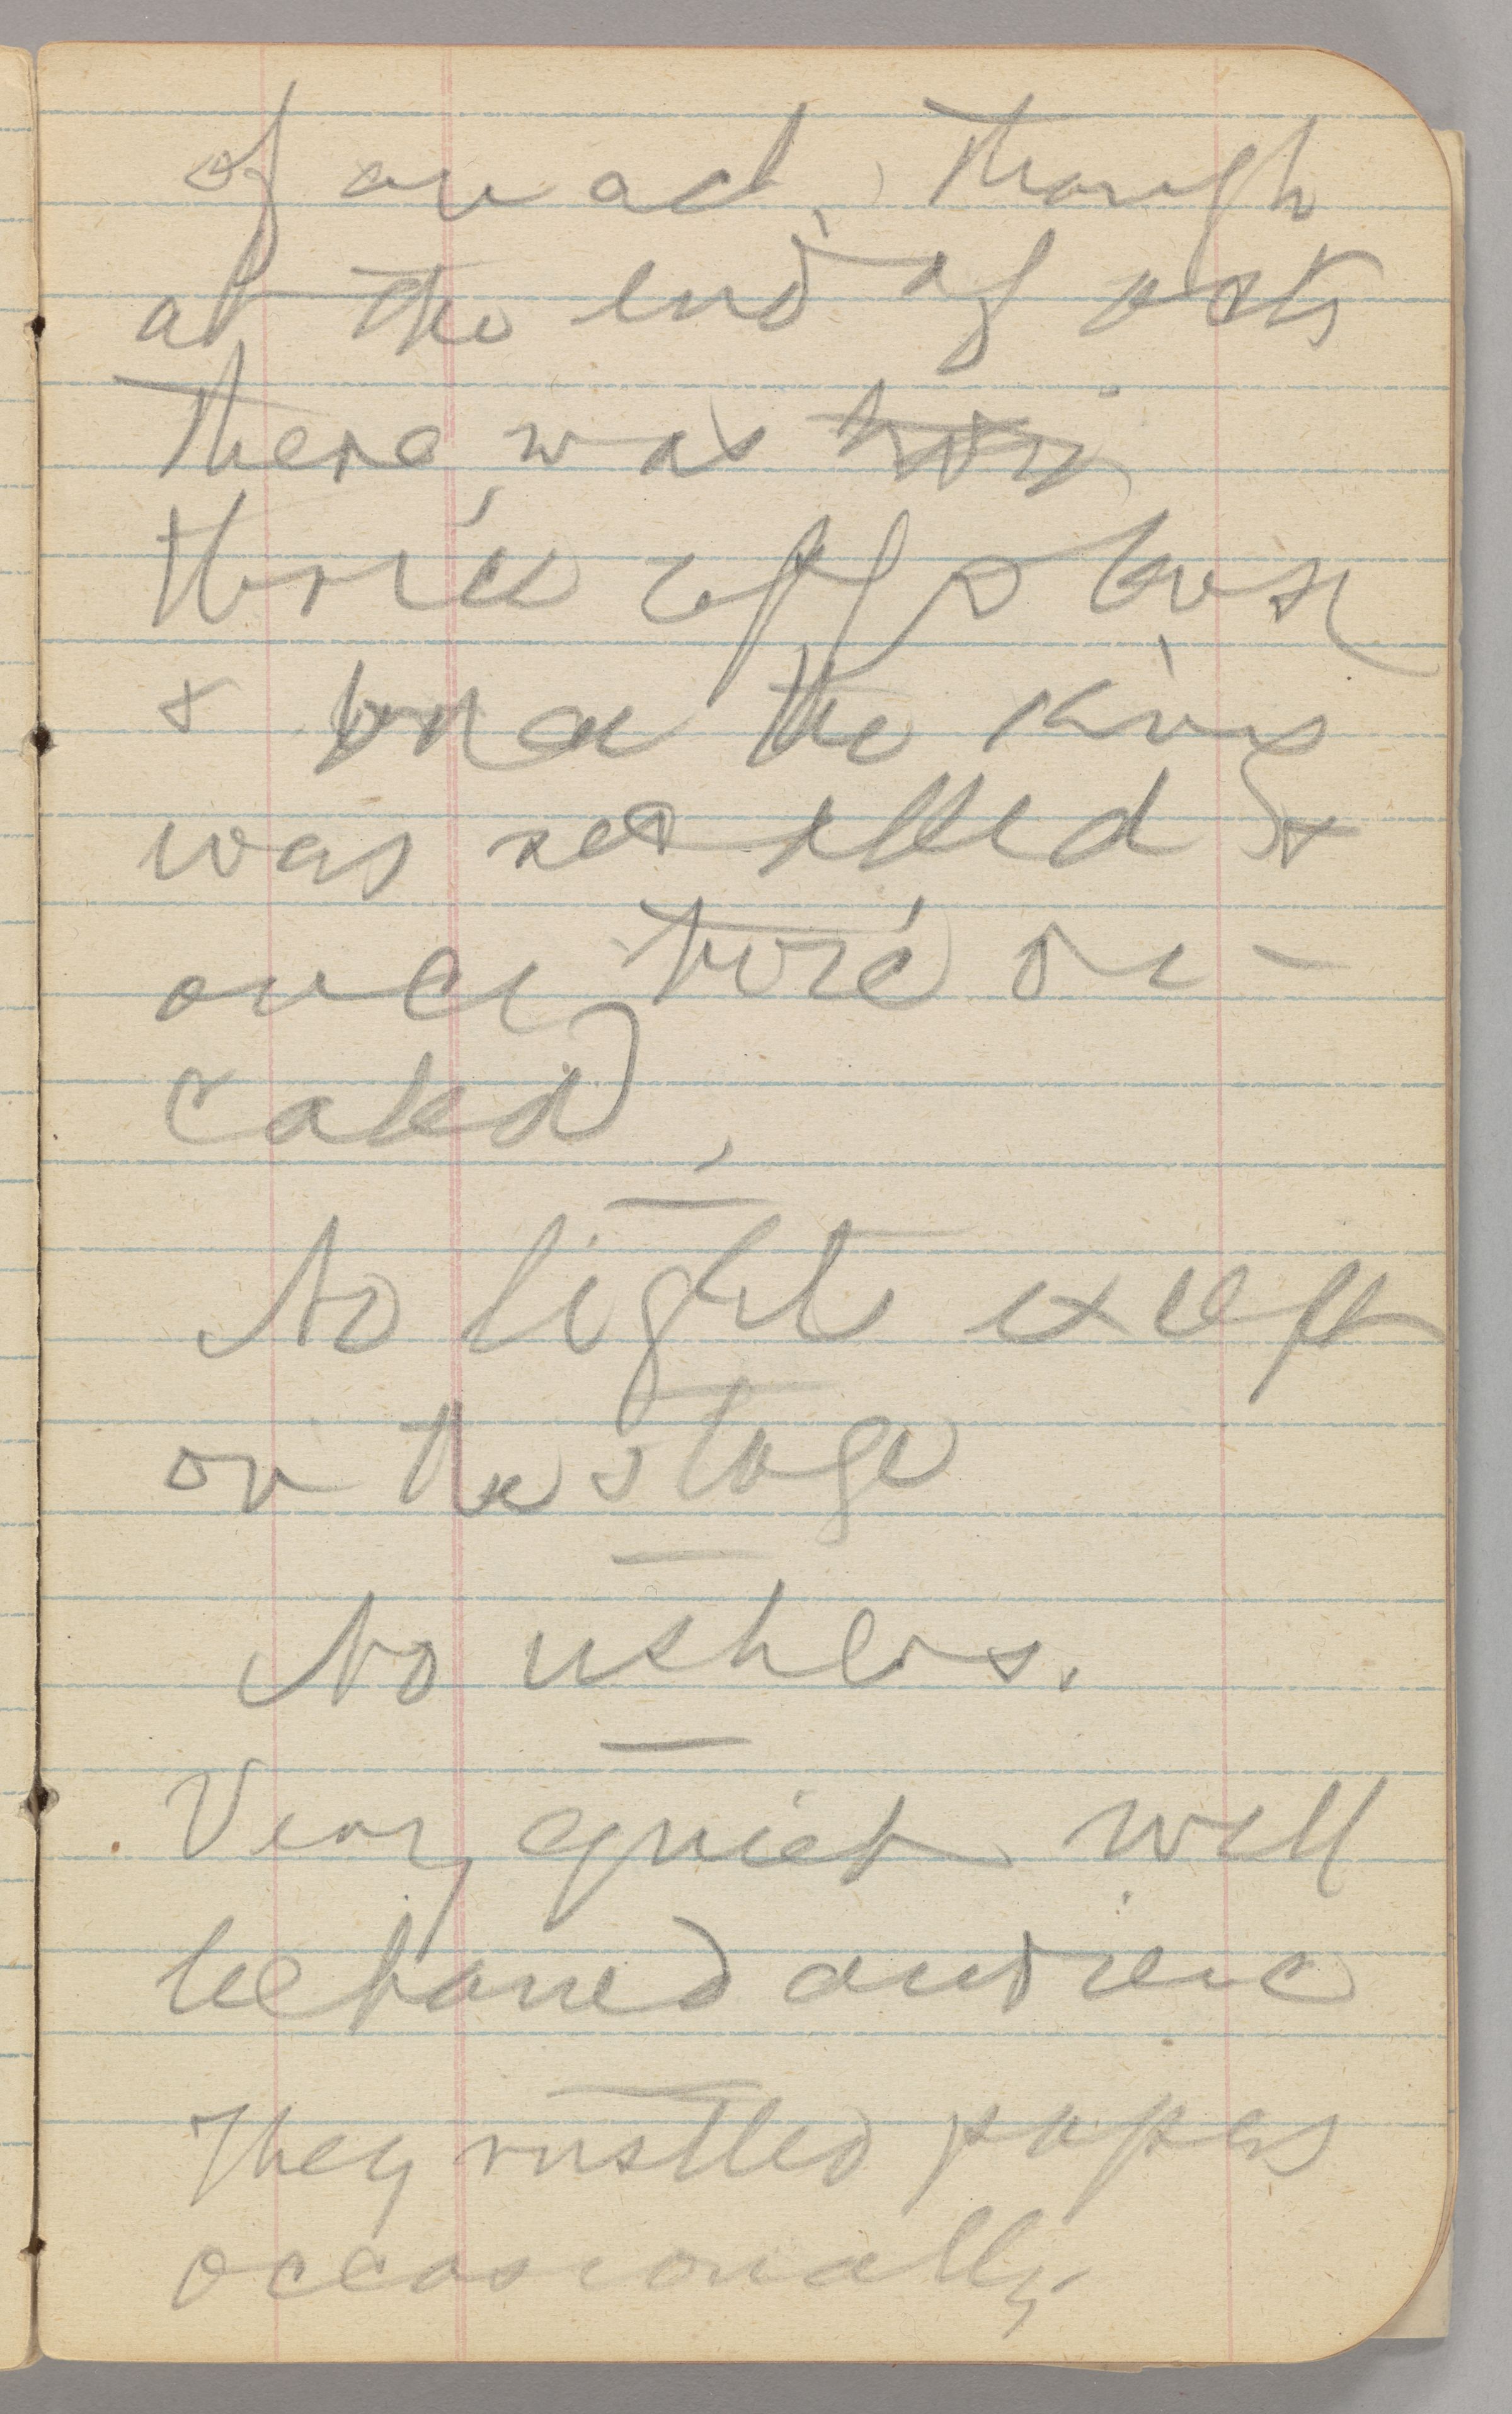 of an act, though
at the end of acts
there was
thrice applause
& once the King
was recalled &
once twice on-
called.
No lights except
on the stage
No ushers.
Very quiet well
behaved audience
They rustled papers
occasionally